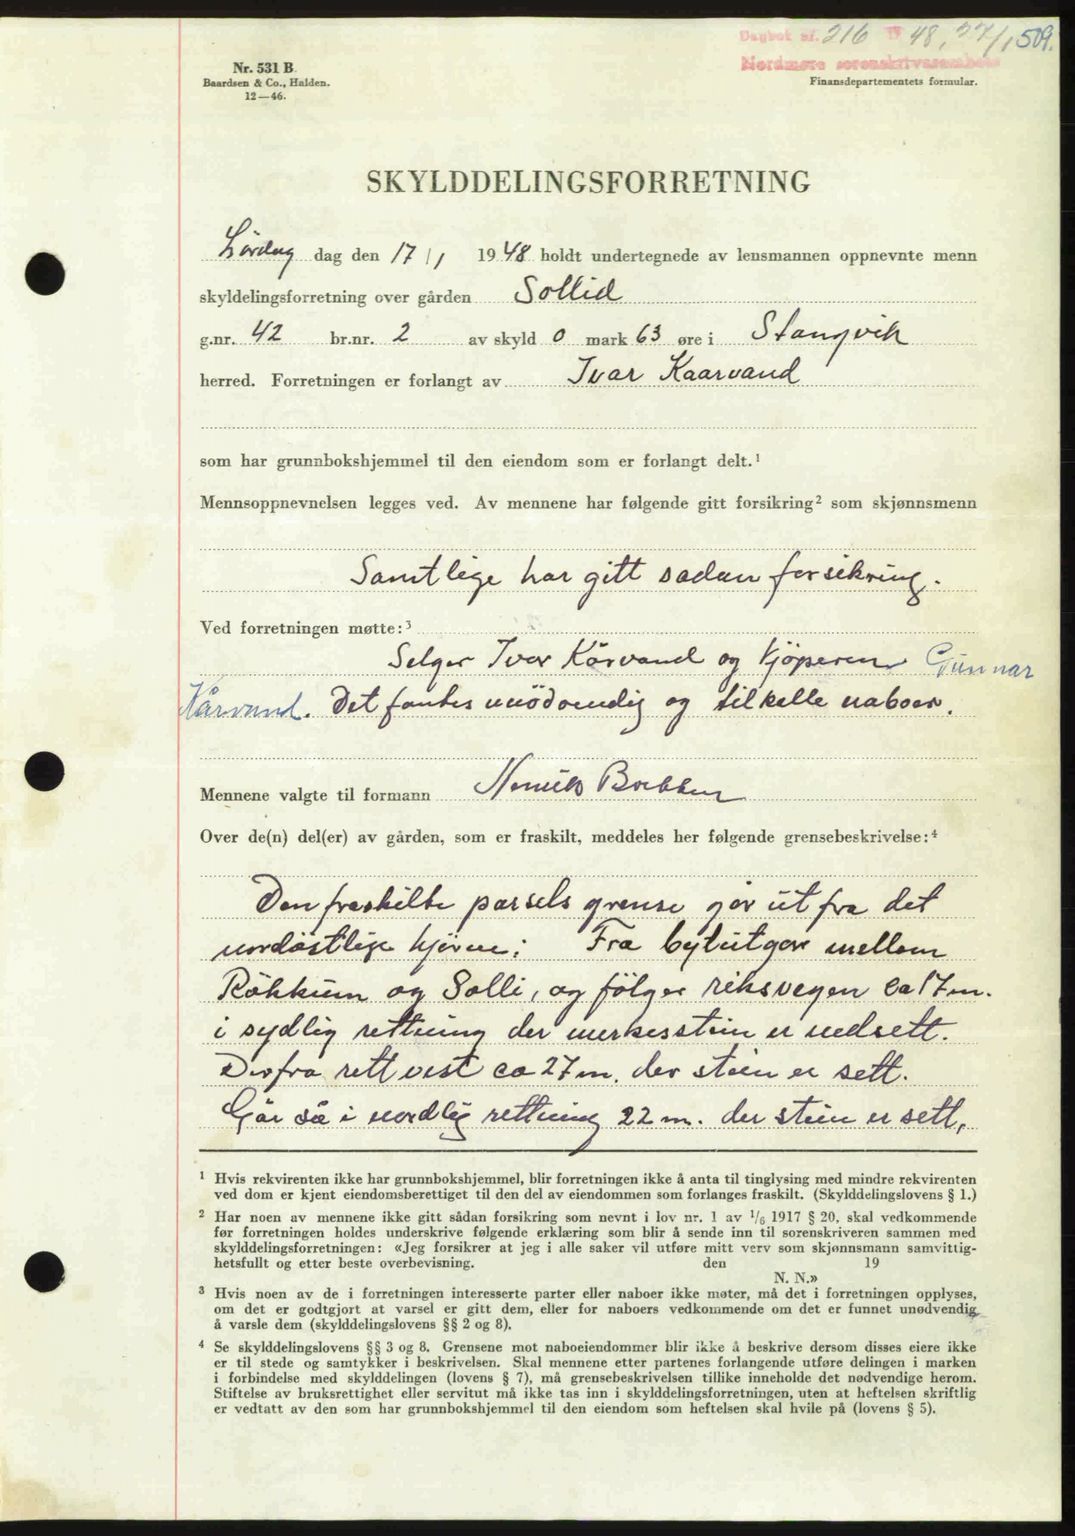 Dagbok nr. 216 19 48, 27/1 509.
Nordmøre sorenskriverembete
Nr. 531 B.
Baardsen & Co., Halden.
12—46.
Finansdepartementets formular.
SKYLDDELINGSFORRETNING
Lördag dag den 17/1 1948 holdt undertegnede av lensmannen oppnevnte menn
skyldelingsforretning over gården Sollid
g.nr. 42 br.nr. 2 av skyld 0 mark 63 øre i Stangvik
herred. Forretningen er forlangt av Ivar Kaarvand
som har grunnbokshjemmel til den eiendom som er forlangt delt.¹
Mennsoppnevnelsen legges ved. Av mennene har følgende gitt forsikring² som skjønnsmenn
Samtlige har gitt sadan forsikring.
Ved forretningen møtte:³
Selger Ivar Kårvand og kjöperen Gunnar
Kårvand. Det fantes unödvendig og tilkalle naboer.
Mennene valgte til formann Brekken
Over de(n) del(er) av gården, som er fraskilt, meddeles her følgende grensebeskrivelse:⁴
Den fraskilte parsels grense gör ut fra det
nordöstlige hjörne: Fra bytutgar mellom
Rökkum og Solli, og fölger riksvegen ca 17 m.
i sydlig rettning der merkesstein er nedsett.
Derfra rett vest ca 27 m. der stein er sett.
Går så i nordlig rettning 22 m. der stein er sett,
¹ Hvis rekvirenten ikke har grunnbokshjemmel, blir forretningen ikke å anta til tinglysing med mindre rekvirenten
ved dom er kjent eiendomsberettiget til den del av eiendommen som forlanges fraskilt. (Skylddelingslovens § 1.)
² Har noen av mennene ikke gitt sådan forsikring som nevnt i lov nr. 1 av 1/6 1917 § 20, skal vedkommende
før forretningen holdes underskrive følgende erklæring som blir å sende inn til sorenskriveren sammen med
skylddelingsforretningen: «Jeg forsikrer at jeg i alle saker vil utføre mitt verv som skjønnsmann samvittig-
hetsfullt og etter beste overbevisning. den 19
N. N.»
³ Hvis noen av de i forretningen interesserte parter eller naboer ikke møter, må det i forretningen opplyses,
om det er godtgjort at varsel er gitt dem, eller for naboers vedkommende om det er funnet unødvendig
å varsle dem (skylddelingslovens §§ 2 og 8).
⁴ Se skylddelingslovens §§ 3 og 8. Grensene mot naboeiendommer blir ikke å beskrive dersom disses eiere ikke
er til stede og samtykker i beskrivelsen. Skal mennene etter partenes forlangende utføre delingen i marken
i forbindelse med skylddelingen (lovens § 7), må grensebeskrivelsen tillike inneholde det nødvendige herom.
Stiftelse av bruksrettighet eller servitut må ikke tas inn i skylddelingsforretningen, uten at heftelsen skriftlig
er vedtatt av den som har grunnbokshjemmel til den eiendom som heftelsen skal hvile på (lovens § 5).